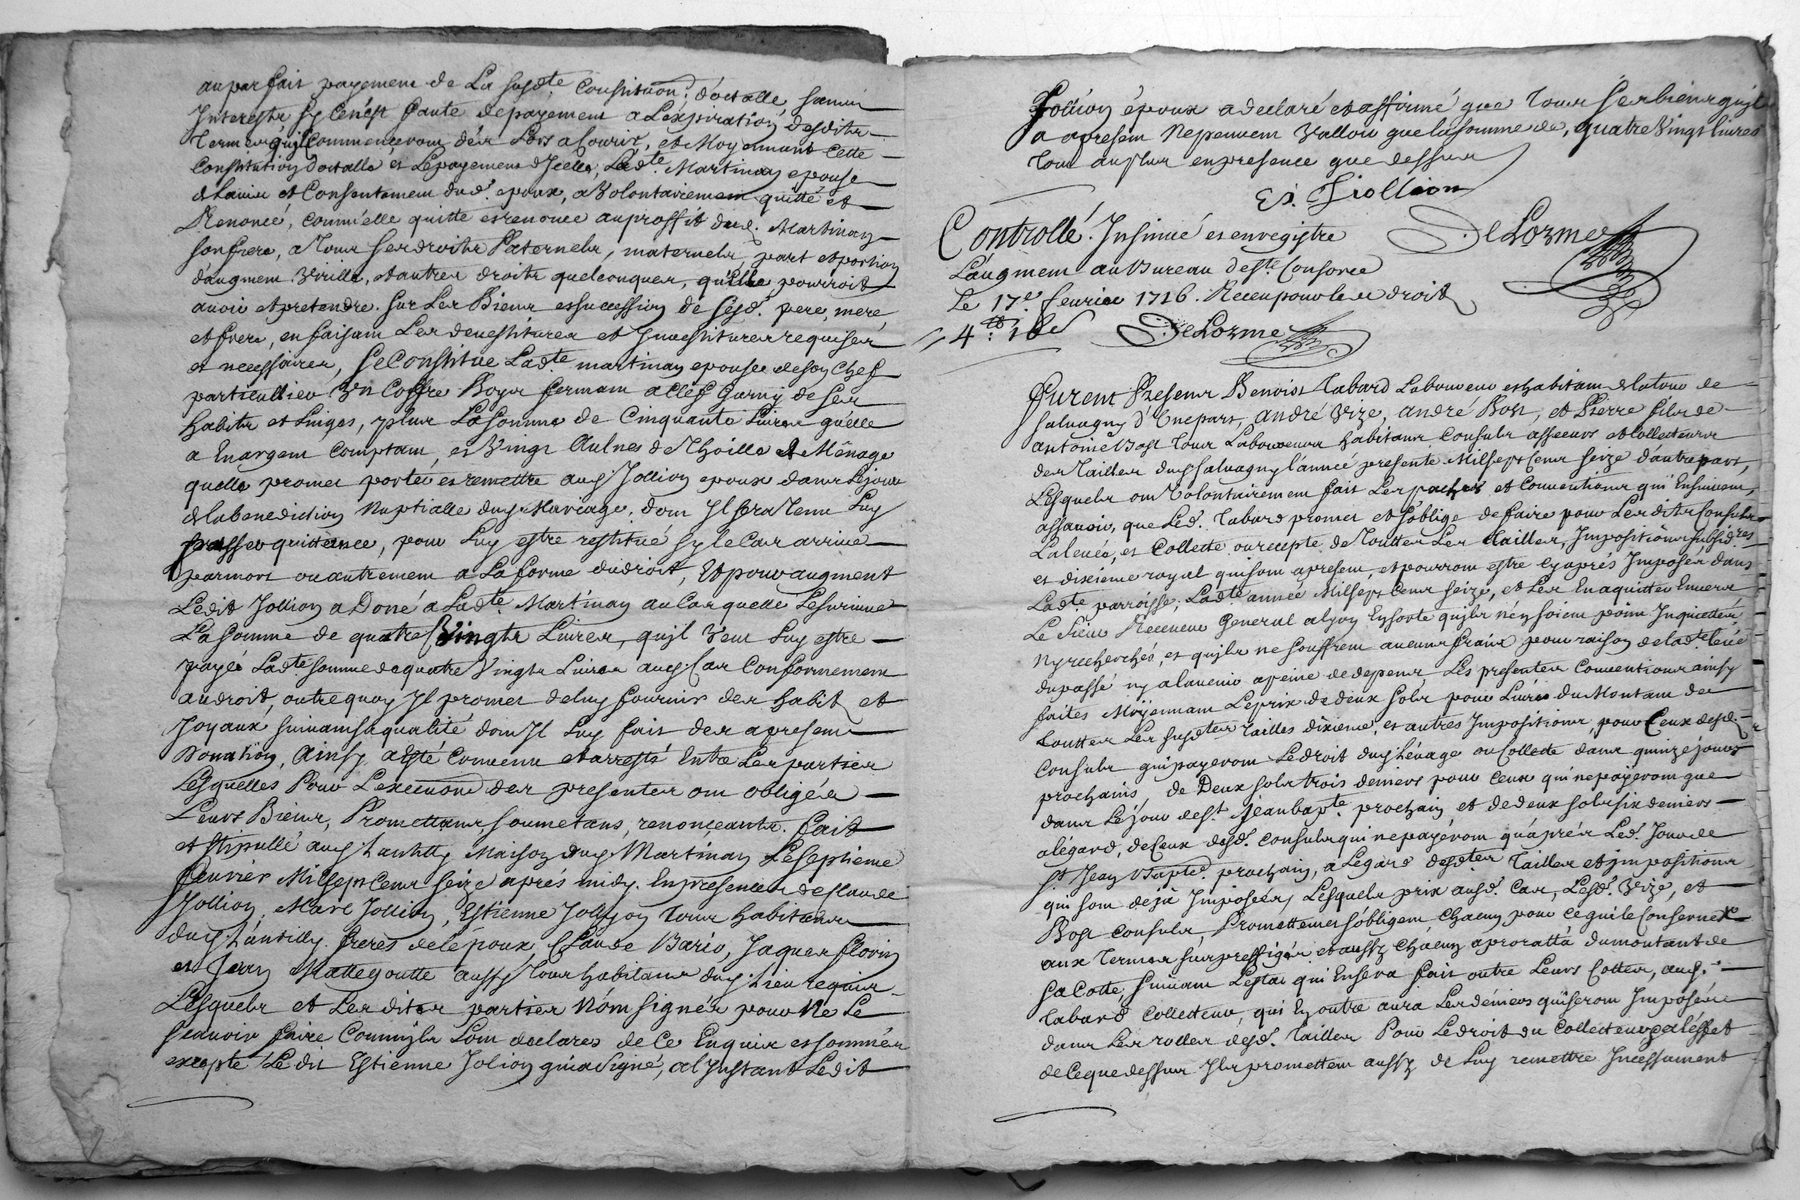 au parfait payement de La susdte Constituon. dotalle sans
Interests sy Ce n'est faute depayement a L'expiration desdits
Termes qu'il Commencerons dés Lors a Courir, et Moyennant Cette
Constitution dotalle et Lepayement d'Jcelle, Ladte. Martinay epouse
de Lavis et Consentement dud. epoux, a Volontairement quitté et
Renoncé, comm'elle quitte et renonce au proffit dud. Martinay
son frere, a Tous ses droits Paternels, maternels, part et portion
daugment Virille, et autres droits quelconques, qu'Elle pourroit
avoir et pretendre sur Les Biens et succession de sesd. pere, mere,
et frere, en faisant Les devestitures et Jnvestitures requises
et necessaires, se Constitue Ladte martinay epouse de son Chef
particulier Vn Coffre Boys fermant a Clef Garny de ses
habits et Linges, plus La somme de Cinquante Livres qu'elle
a En argent Comptant, et Vingt Aulnes de Thoille de Ménage
quelle promet porter et remettre aud. Jollion epoux dans Le jour
de La benediction Nuptialle dud. Mariage, dont Jl sera Tenu Luy
passer quittance, pour Luy estre restitué sy le Cas arrive
par mort ou autrement a La forme du droit, Et pour augment
Ledit Jollion a Doné a Ladte Martinay au Cas quelle Lesurvive
La somme de quatre Vingts Livres, qu'jl Veut Luy estre
payée Ladte somme de quatre Vingts Livres aud. Cas Conformement
au droit, outre quoy Jl promet de luy fournir des habits et
Joyaux suivant sa qualité dont Jl Luy fait des a present
Donation, Ainsy a esté Convenu et arresté Entre Les parties
Lesquelles Pour L'execuon des presentes ont obligées
Leurs Biens, Promettans, soumetans, renonçeants. fait
et stipullé aud. Lantilly Maison dud. Martinay Leseptieme
fevrier Milsept Cens seize aprés midy. En presences de Claude
Jollion, Marc Jollion, Estienne Jollion Tous habitans
dud. Lantilly. freres de l'époux, Claude Bario, Jaques florin
et Jean Mattegoutte aussy Tous habitans dud. Lieu requis
Lesquels et Lesdites parties N'ont signés pour Ne Le
scavoir faire Comm'jls L'ont declarés de Ce Enquis et sommés
excepté Ledit Estienne Jolion qui a signé, a l'Jnstant Ledit
Jollion époux a declaré et affirmé que Tous ses biens qu'jl
a a present Ne peuvent Valloir que la somme de, quatre Vingt livres
Tout au plus en presence que dessus
Es. Jiollion
DeLorme
Controllé. Insinué et enregistre
L'augment au Bureau de Ste Consorce
Le 17e. fevrier 1716. Receu pour les droits
4tt. 16s
DeLorme
Furent Presens Benoist Tabard Laboureur et habitant de latour de
salvagny d'Une part, André Vize, André Bost, et Pierre fils de
antoine Bost Tous Laboureurs habitans Consuls asseeurs et Collecteurs
des Tailles dud. salvagny l'année presente Milsept Cens seize d'autre part,
Lesquels ont Volontairement fait Les paches et Conventions qui Ensuivent,
assavoir, que Led. Tabard promet et s'oblige de faire pour Lesdits Consuls
La levée, et Collette ou recepte de Touttes Les Tailles, Impositions subsidres
et dixieme royal qui sont a present, et pourront estre Cy aprés Imposés dans
Ladte. parroisse, Ladte année Milsept Cens seize, et Les En aquitter Envers
Le sieur Receveur General a Lyon En sorte qu'jls n'en soient point Inquietter,
Ny recherchés, et qu'jls ne souffrent aucuns fraix pour raison de ladte Levée
du passé ny a lavenir a peine de depens Les presentes Conventions ainsy
faites Moyennant Le prix de deux sols pour Livre du Montant de
Touttes Les susdtes Tailles dixieme, et autres Impositions, pour Ceux desd.
Consuls qui payeront Le droit dud. Lévage ou Collecte dans quinze jours
prochains de Deux sols trois deniers pour Ceux qui ne payeront que
dans Le jour de st. Jean bapte. prochain et de deux sols six deniers
a légard, de Ceux desd. consuls qui ne payéront qu'aprés Led. Jour de
st. Jean Bapte. prochain, a Légard desdtes Tailles et jmpositions
qui sont déja Jmposées, Lesquels prix ausd. Cas, Lesd. Vize, et
Bost Consuls Promettent et s'obligent Chacun pour Ce qui le Conserne
aux Termes sus preffigés, et aussy Chacun a proratta du montant de
sa Cotte suivant L'estat qui En sera fait outre Leurs Cottes, aud.
Tabard Collecteur, qui En outre aura Les déniers qui seront Jmposés
dans Les rolles desd. Tailles Pour Le droit du Collecteur pal éffet
de Ce que dessus Jls promettent aussy de Luy remettre Jncessament